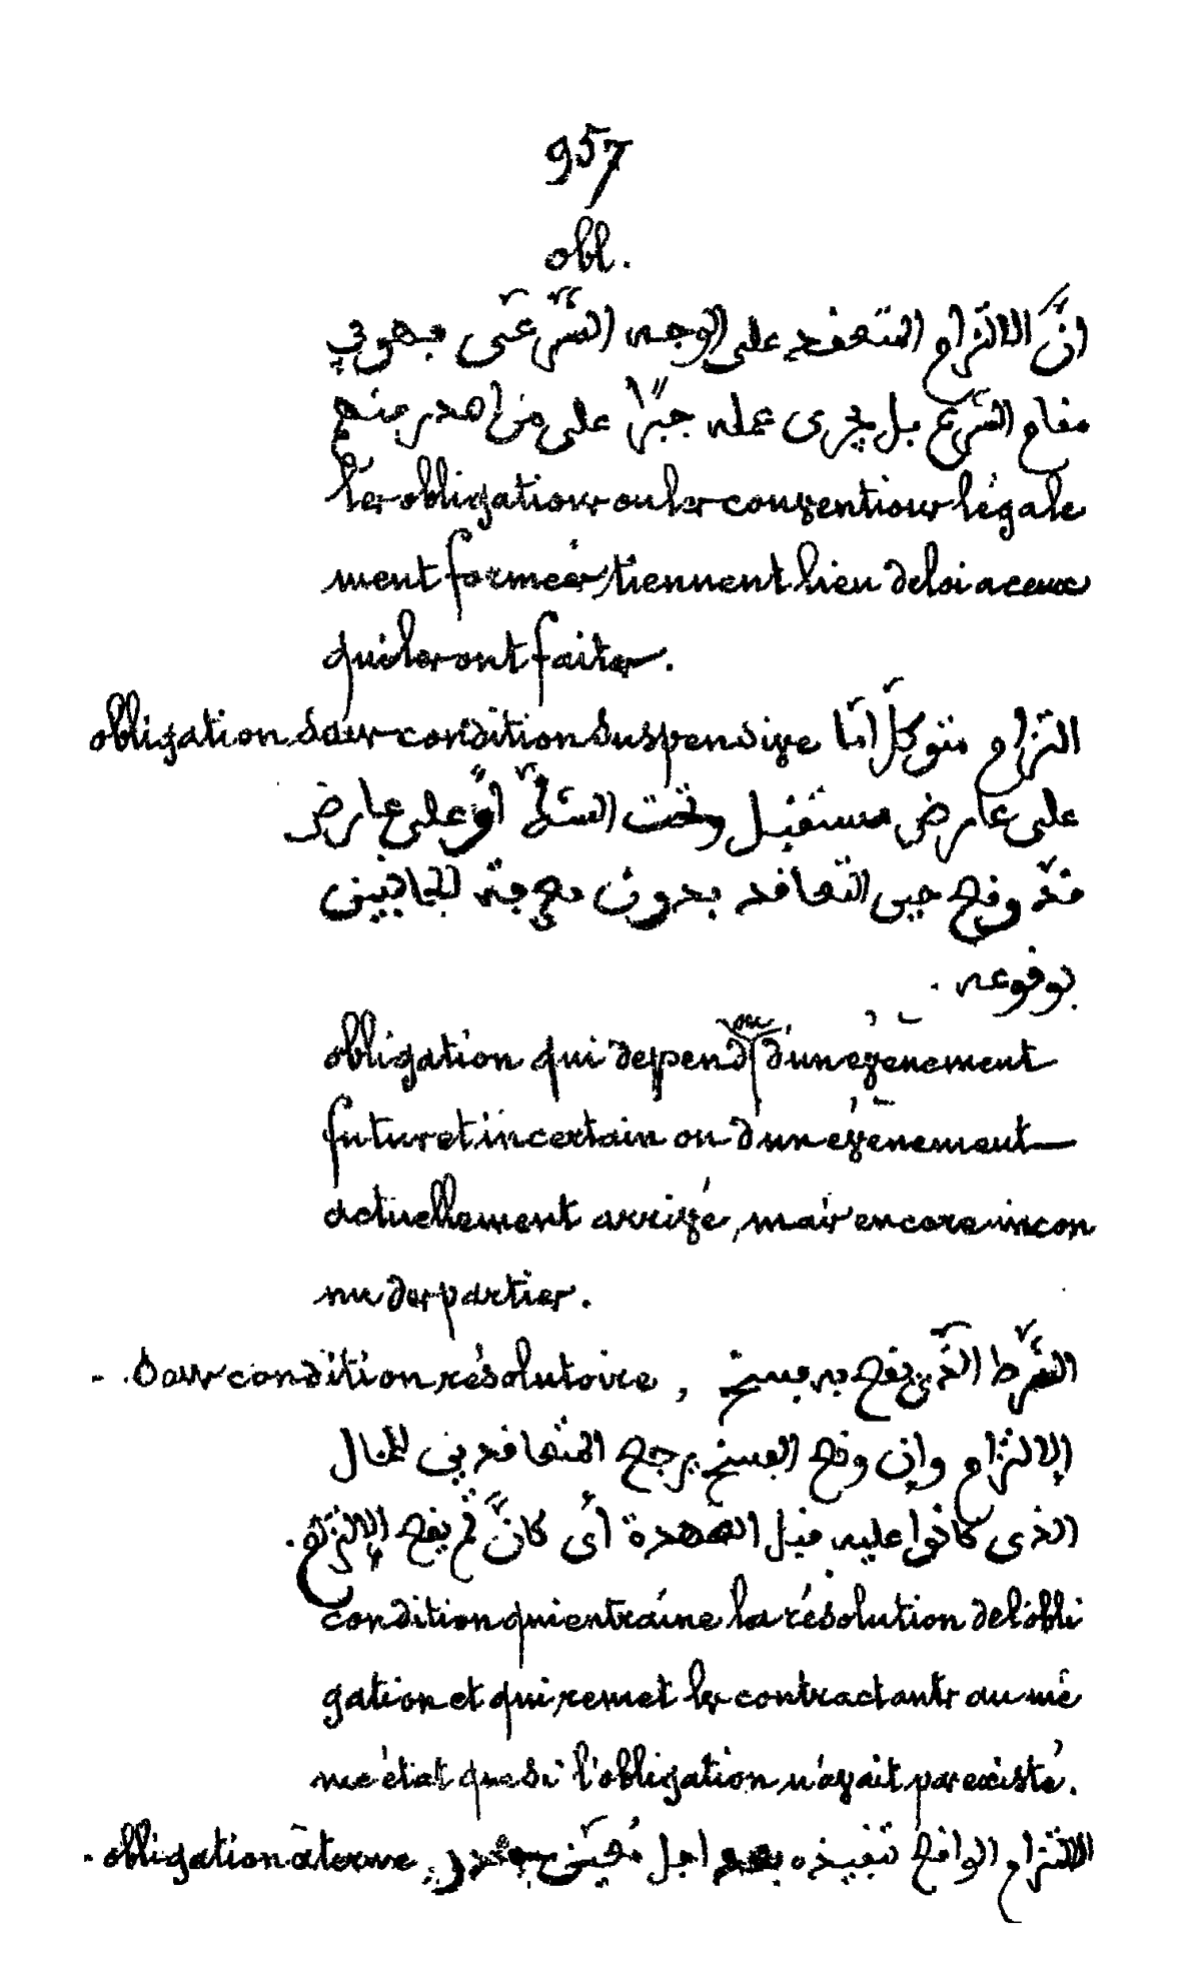 957
obl.
انّ الالتزام المنعقد على الوجه الشّرعّى فهو في
مقام الشّرع بل يجرى عمله جبرًا على من اهدر منهم
les obligations ou les conventions légale
ment formées, tiennent lieu de loi a ceux
qui les ont faites.
obligation sous condition suspensive التزام متوكّل امّا
على عارض مستقبل وتحت الشكّ اوّ على عارض
قدّ وقع حين التعاقد بدون للجانبين
بوقوعه.
obligation qui depend ou d'un évènement
futur et incertain ou d'un évènement
actuellement arrivé, mais encore incon
nu des parties.
- . Sous condition résolutoire, الشّرط الذّي يقع به فسخ
الإلتزام وإن وقع الفسخ يرجع المتعاقدين للحال
الذى كانوا عليه قبل العهدة أى كانّ لم يقع الإلتزام.
condition qui entraine la résolution de l'obli
gation et qui remet les contractants au mê
me état que si l'obligation n'avait pas existé.
- obligation à terme الالتزام الواقع تنفيذه بعد اجل مُعيّن